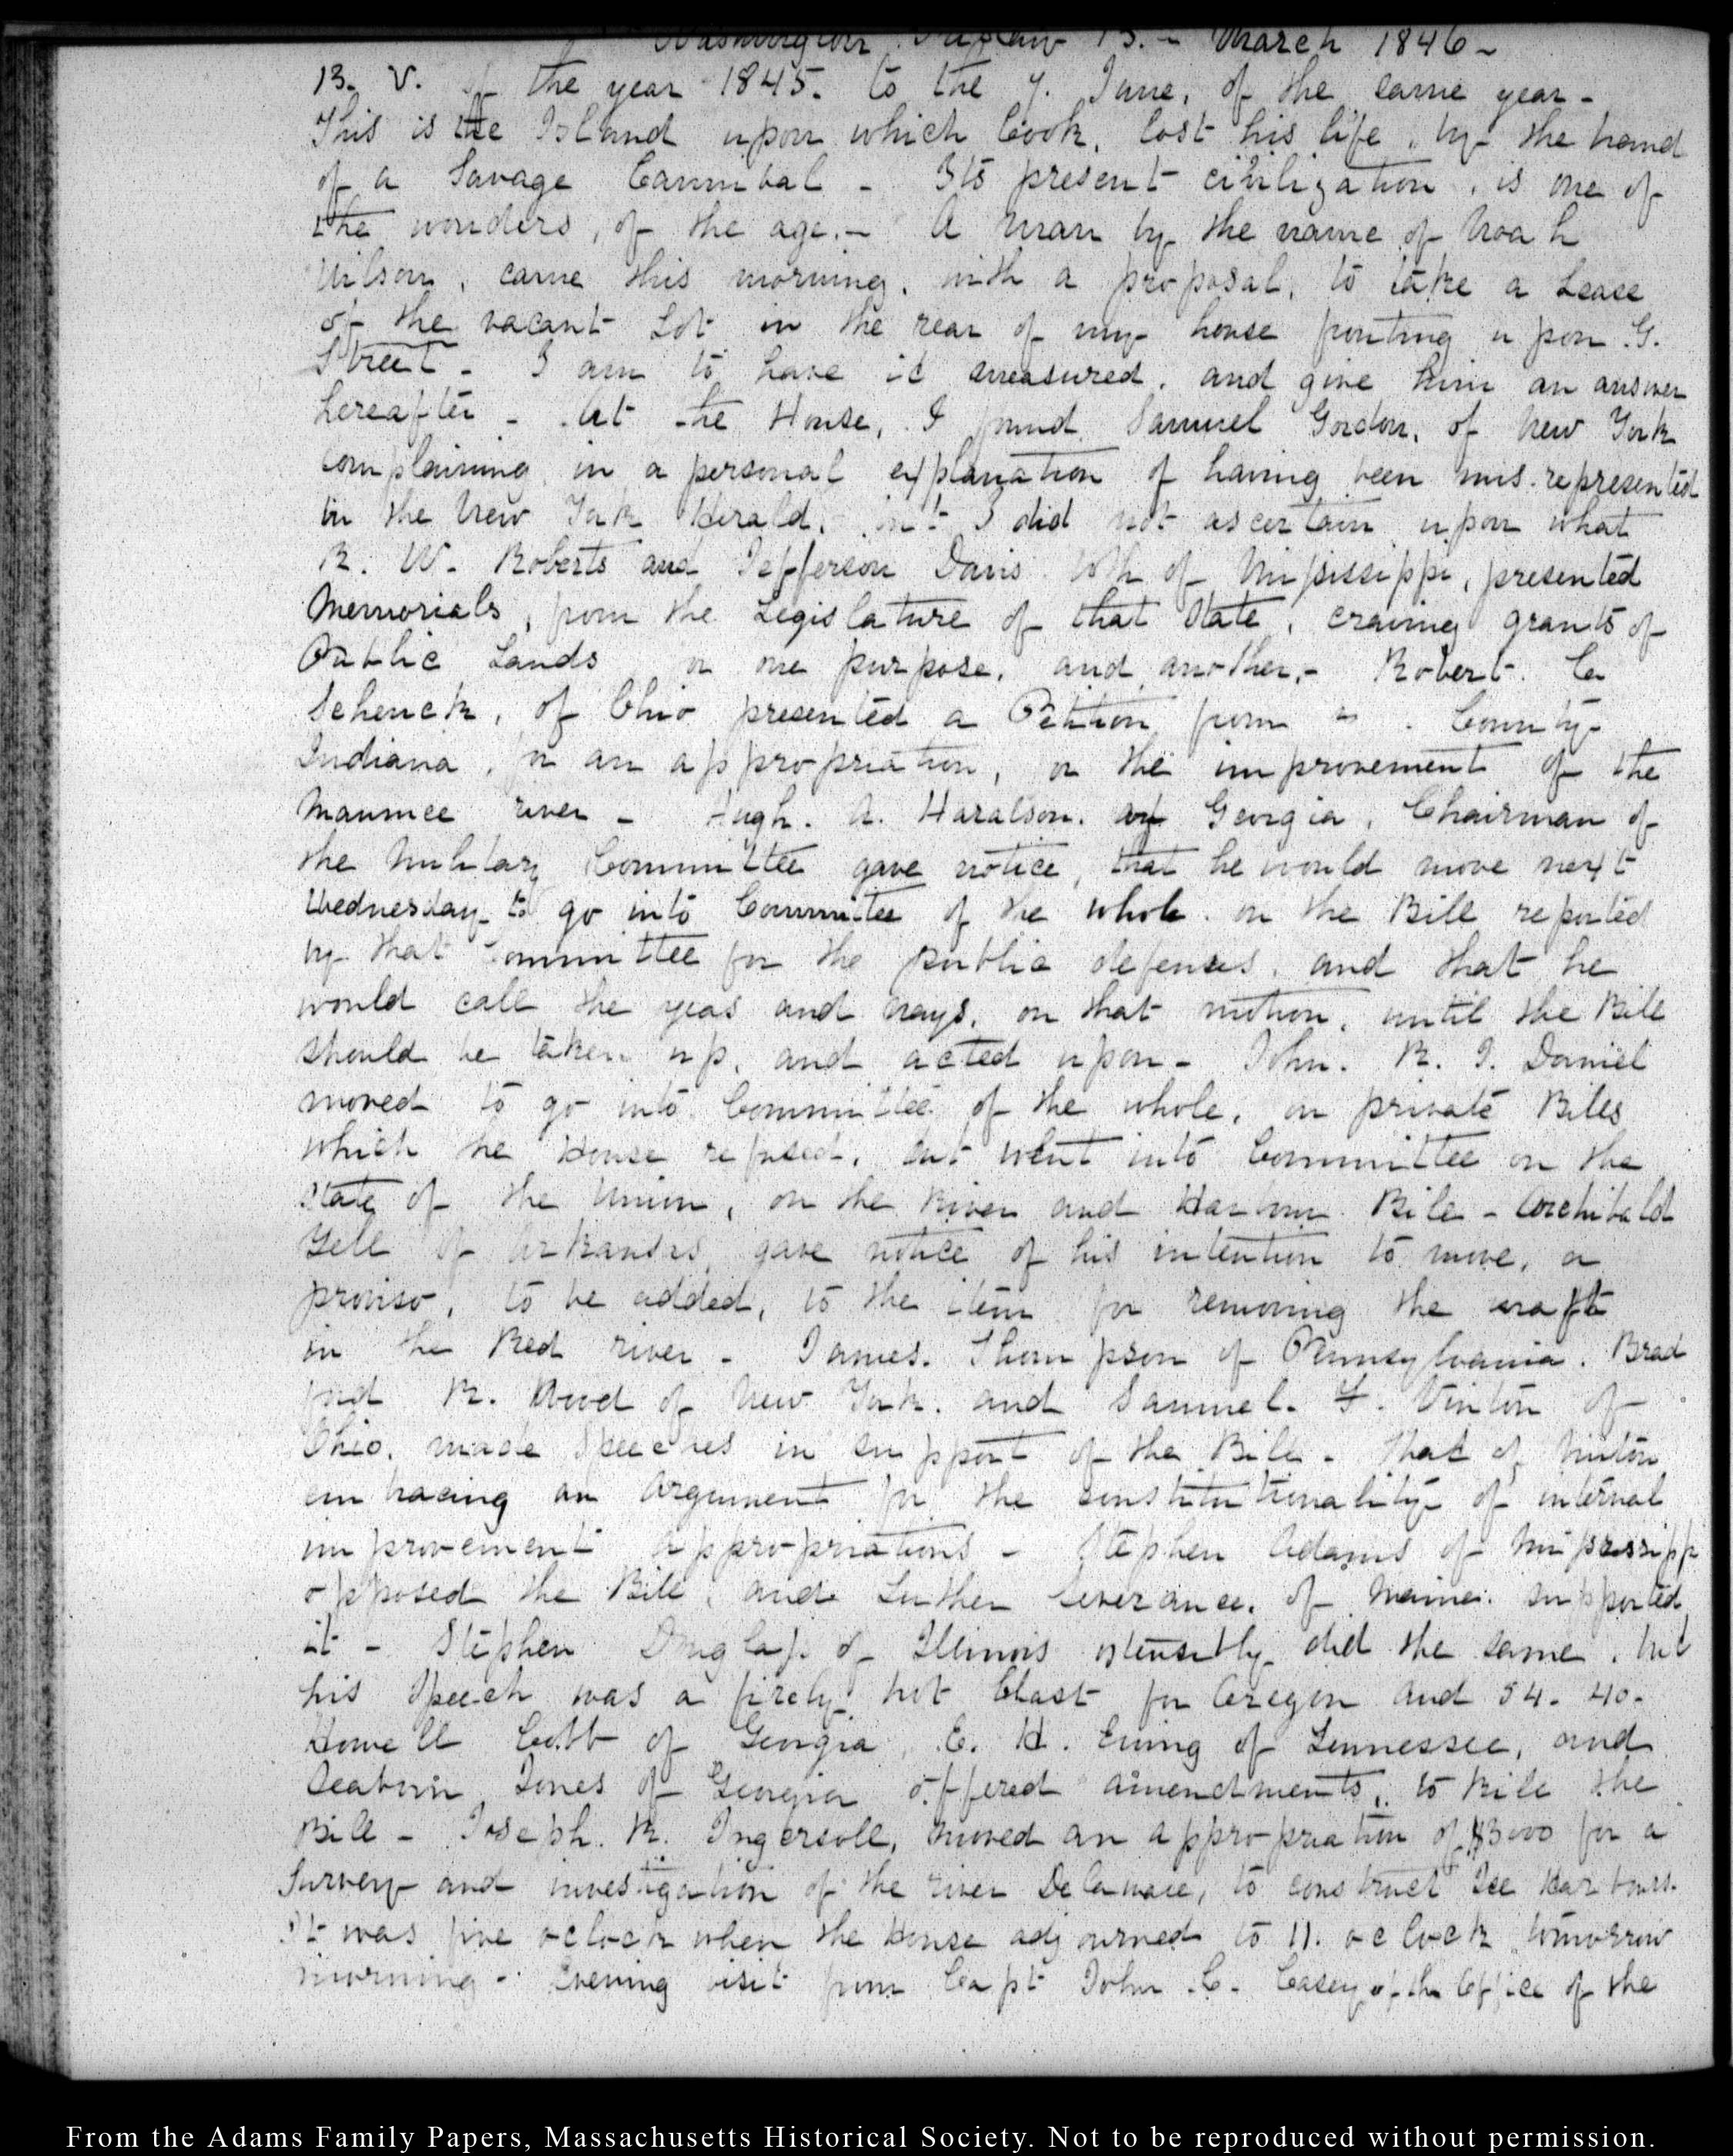 Washington Friday 13. - March 1846-
13. V. of the year 1845. to the 7. June, of the same year-
This is the Island upon which Cook, lost his life, by the hand
of a Savage Cannibal - Its present civilization, is one of
the wonders, of the age.- A man by the name of Noah
Wilson, came this morning, with a proposal, to take a Lease
of the vacant Lot in the rear of my house fronting upon G.
Street - I am to have it measured, and give him an answer
hereafter - At the House, I found Samuel Gordon, of New York
complaining in a personal explanation of having been mis-represented
in the New York Herald, but I did not ascertain upon what
R. W. Roberts and Jefferson Davis both of Mississippi, presented
Memorials, from the Legislature of that State, craving grants of
Public Lands for one purpose, and another,- Robert. C.
Schenck, of Ohio presented a Petition from County
Indiana, for an appropriation, for the improvement of the
Maumee river - Hugh. A. Haralson. of Georgia, Chairman of
the Military Committee gave notice, that he would move next
Wednesday to go into Committee of the whole on the Bill reported
by that Committee for the public defenses, and that he
would call the yeas and nays, on that motion, until the Bill
should be taken up, and acted upon - John. R. J. Daniel
moved to go into Committee of the whole, on private Bills
which the House refused, but went into Committee on the
State of the Union, on the River and Harbour Bill - Archibald
Yell of Arkansas gave notice of his intention to move, a
proviso, to be added, to the item for removing the raft
in the Red river - James. Thompson of Pennsylvania. Brad
ford R. Wood of New York. and Samuel. F. Vinton of
Ohio, made Speeches in support of the Bill - that of Vinton
embracing an argument for the constitutionality of internal
improvement appropriations - Stephen Adams of Mississippi
opposed the Bill, and Luther Severance. of Maine. supported
it - Stephen Douglass of Illinois ostensibly did the same, but
his Speech was a firely hot blast for Oregon and 54. 40.
Howell Cobb of Georgia, E. H. Ewing of Tennessee, and
Seaborn Jones of Georgia offered amendments, to kill the
Bill - Joseph. R. Ingersoll, moved an appropriation of $3000 for a
Survey and investigation of the river Delaware, to construct Ice Harbours.
It was five oclock when the House adjourned to 11. oclock tomorrow
morning - Evening visit from Capt John C. Casey of the Office of the
From the Adams Family Papers, Massachusetts Historical Society. Not to be reproduced without permission.